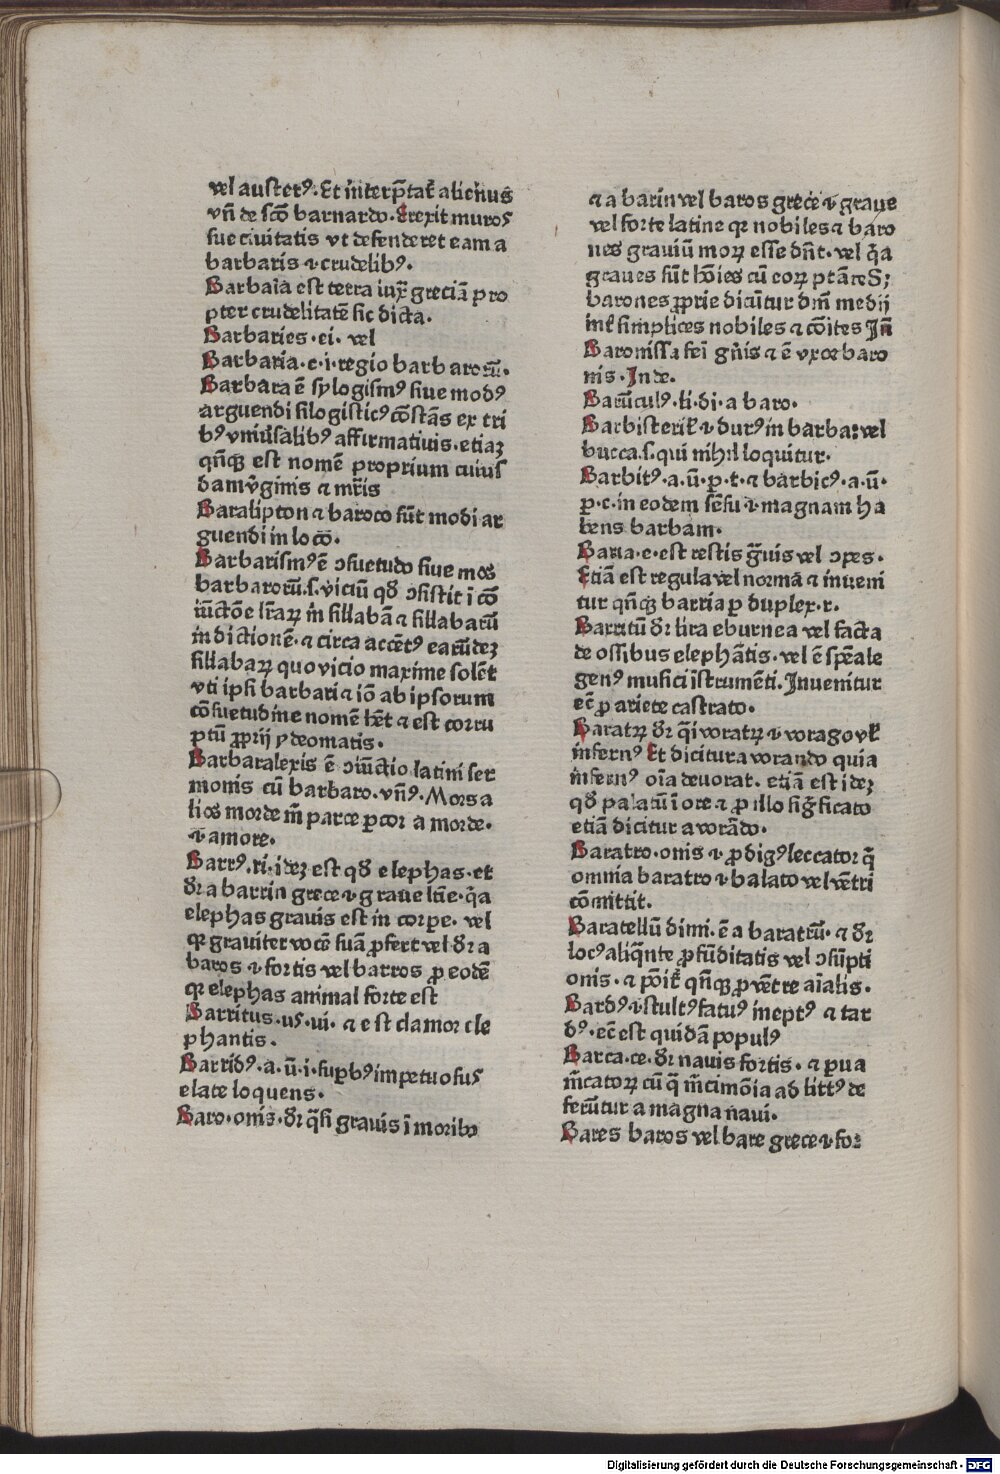 vel austerꝰ. Et interp̃tat᷑ alienus
vñ de sc̃o barnardo. Erexit muros
sue ciuitatis vt defenderet eam a
barbaris ⁊ crudelibꝰ.
Barbaia est terra iuxͣ greciã pro
pter crudelitatẽ sic dicta.
Barbaries. ei. vel
Barbaria. e. i. regio barbarorũ.
Barbara ẽ sylogismꝰ siue modꝰ
arguendi silogisticꝰ cõstãs ex tri
bꝰ vniũsalibꝰ affirmatiuis. etiaꝫ
qñqꝫ est nomẽ proprium cuius
dam v̾ginis ⁊ mr̃is
Baralipton ⁊ baroco sũt modi ar
guendi in loco.
Barbarismꝰ ẽ ꝯsuetudo siue mos
barbarorũ. s. viciũ qd̃ ꝯsistit ĩ cõ
iũctõe lr̃aꝝ in sillabã ⁊ sillabarũ
in dictionẽ. ⁊ circa accẽtꝰ earũdeꝫ
sillabaꝝ quo vicio maxime solẽt
vti ipsi barbari ⁊ iõ ab ipsorum
cõsuetudine nomẽ hẽt ⁊ est corru
ptũ ꝓprij ydeomatis.
Barbaralexis ẽ ꝯiũctio latini ser
monis cũ barbaro. vñꝰ. Mors a
lios morde m̃ parce precor a morde.
⁊ amore.
Barrꝰ. ri. ideꝫ est qd̃ elephas. et
dr̃ a barrin grece ⁊ graue ltĩe. q̃a
elephas grauis est in corpe. vel
qꝛ grauiter vocẽ suã ꝓfert vel dr̃ a
baros ⁊ fortis vel barros ꝓ eodẽ
qꝛ elephas animal forte est
Barritus. us. ui. ⁊ est clamor ele
phantis.
Barridꝰ. a. ũ. i. suꝑbꝰ impetuosus
elate loquens.
Baro. onis. dr̃ q̃si grauis ĩ moribꝰ
⁊ a barin vel baros grece ⁊ graue
vel forte latine qꝛ nobiles ⁊ baro
nes grauiũ moꝝ esse dñt. vel q̃a
graues sũt hoĩes cũ eoꝝ ptãte Sꝫ
barones ꝓprie dicũtur dñi medij
int᷑ simplices nobiles ⁊ cõites Iñ
Baronissa fei gñis ⁊ ẽ vxor baro
nis. Inde.
Barũculꝰ. li. di. a baro.
Barbisteriẽ ⁊ durꝰ in barba: vel
bucca. s. qui nihil loquitur.
Barbitꝰ. a. ũ. ꝑ. t. ⁊ barbicꝰ. a. ũ.
ꝑ. c. in eodem sẽsu ⁊ magnam ha
bens barbam.
Baria. e. est restis g̃uis vel ꝯpes.
Etiã est regula vel norma ⁊ inueni
tur qñqꝫ barria ꝑ duplex. r.
Barritũ dr̃ lira eburnea vel facta
de ossibus elephãtis. vel ẽ spẽale
genꝰ musici ĩstrumẽti. Inuenitur
ec̃ ꝓ ariete castrato.
Baratꝝ dr̃ q̃i voratꝝ ⁊ vorago vel
infernꝰ Et dicitur a vorando quia
infernꝰ oĩa deuorat. etiã est ideꝫ
qd̃ palatũ ĩ ore ⁊ ꝓ illo sig̃ficato
etiã dicitur a vorãdo.
Baratro. onis ⁊ ꝓdigꝰ leccator q̃
omnia baratro ⁊ balato vel vẽtri
cõmittit.
Baratellũ dimi. ẽ a baratrũ. ⁊ dr̃
locꝰ aliq̃nte ꝓfũditatis vel ꝯsũpti
onis. ⁊ põit᷑ qñqꝫ ꝓ vẽtre aĩalis.
Bardꝰ ⁊ stultꝰ fatuꝰ ineptꝰ ⁊ tar
dꝰ. ec̃ est quidã populꝰ
Barca. ce. dr̃ nauis fortis. ⁊ parua
m̃catoꝝ cũ q̃ m̃cimõia ad littꝰ de
ferũtur a magna naui.
Bares baros vel bare grece ⁊ for
Digitalisierung gefördert durch die Deutsche Forschungsgemeinschaft - DFG